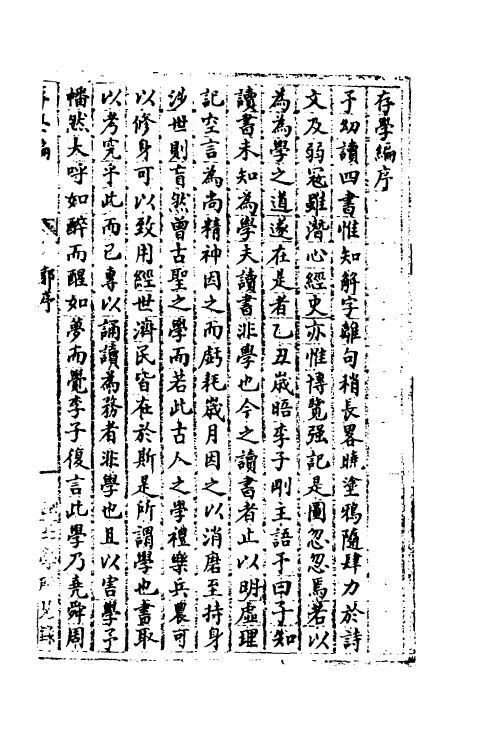 存學編序
予幼讀四書惟知解字離句稍長畧曉塗鴉隨肆力於詩
文及弱冠雖潛心經史亦惟博覽强記是圖忽忽焉若以
為為學之道遂在是者乙丑歲晤李子剛主語予曰子知
讀書未知為學夫讀書非學也今之讀書者止以明虛理
記空言為尚精神因之而虧耗歲月因之以消磨至持身
涉世則盲然曾古聖之學而若此古人之學禮樂兵農可
以修身可以致用經世濟民皆在於斯是所謂學也書取
以考究乎此而已專以誦讀為務者非學也且以害學予
幡然大呼如醉而醒如夢而覺李子復言此學乃堯舜周
郭序